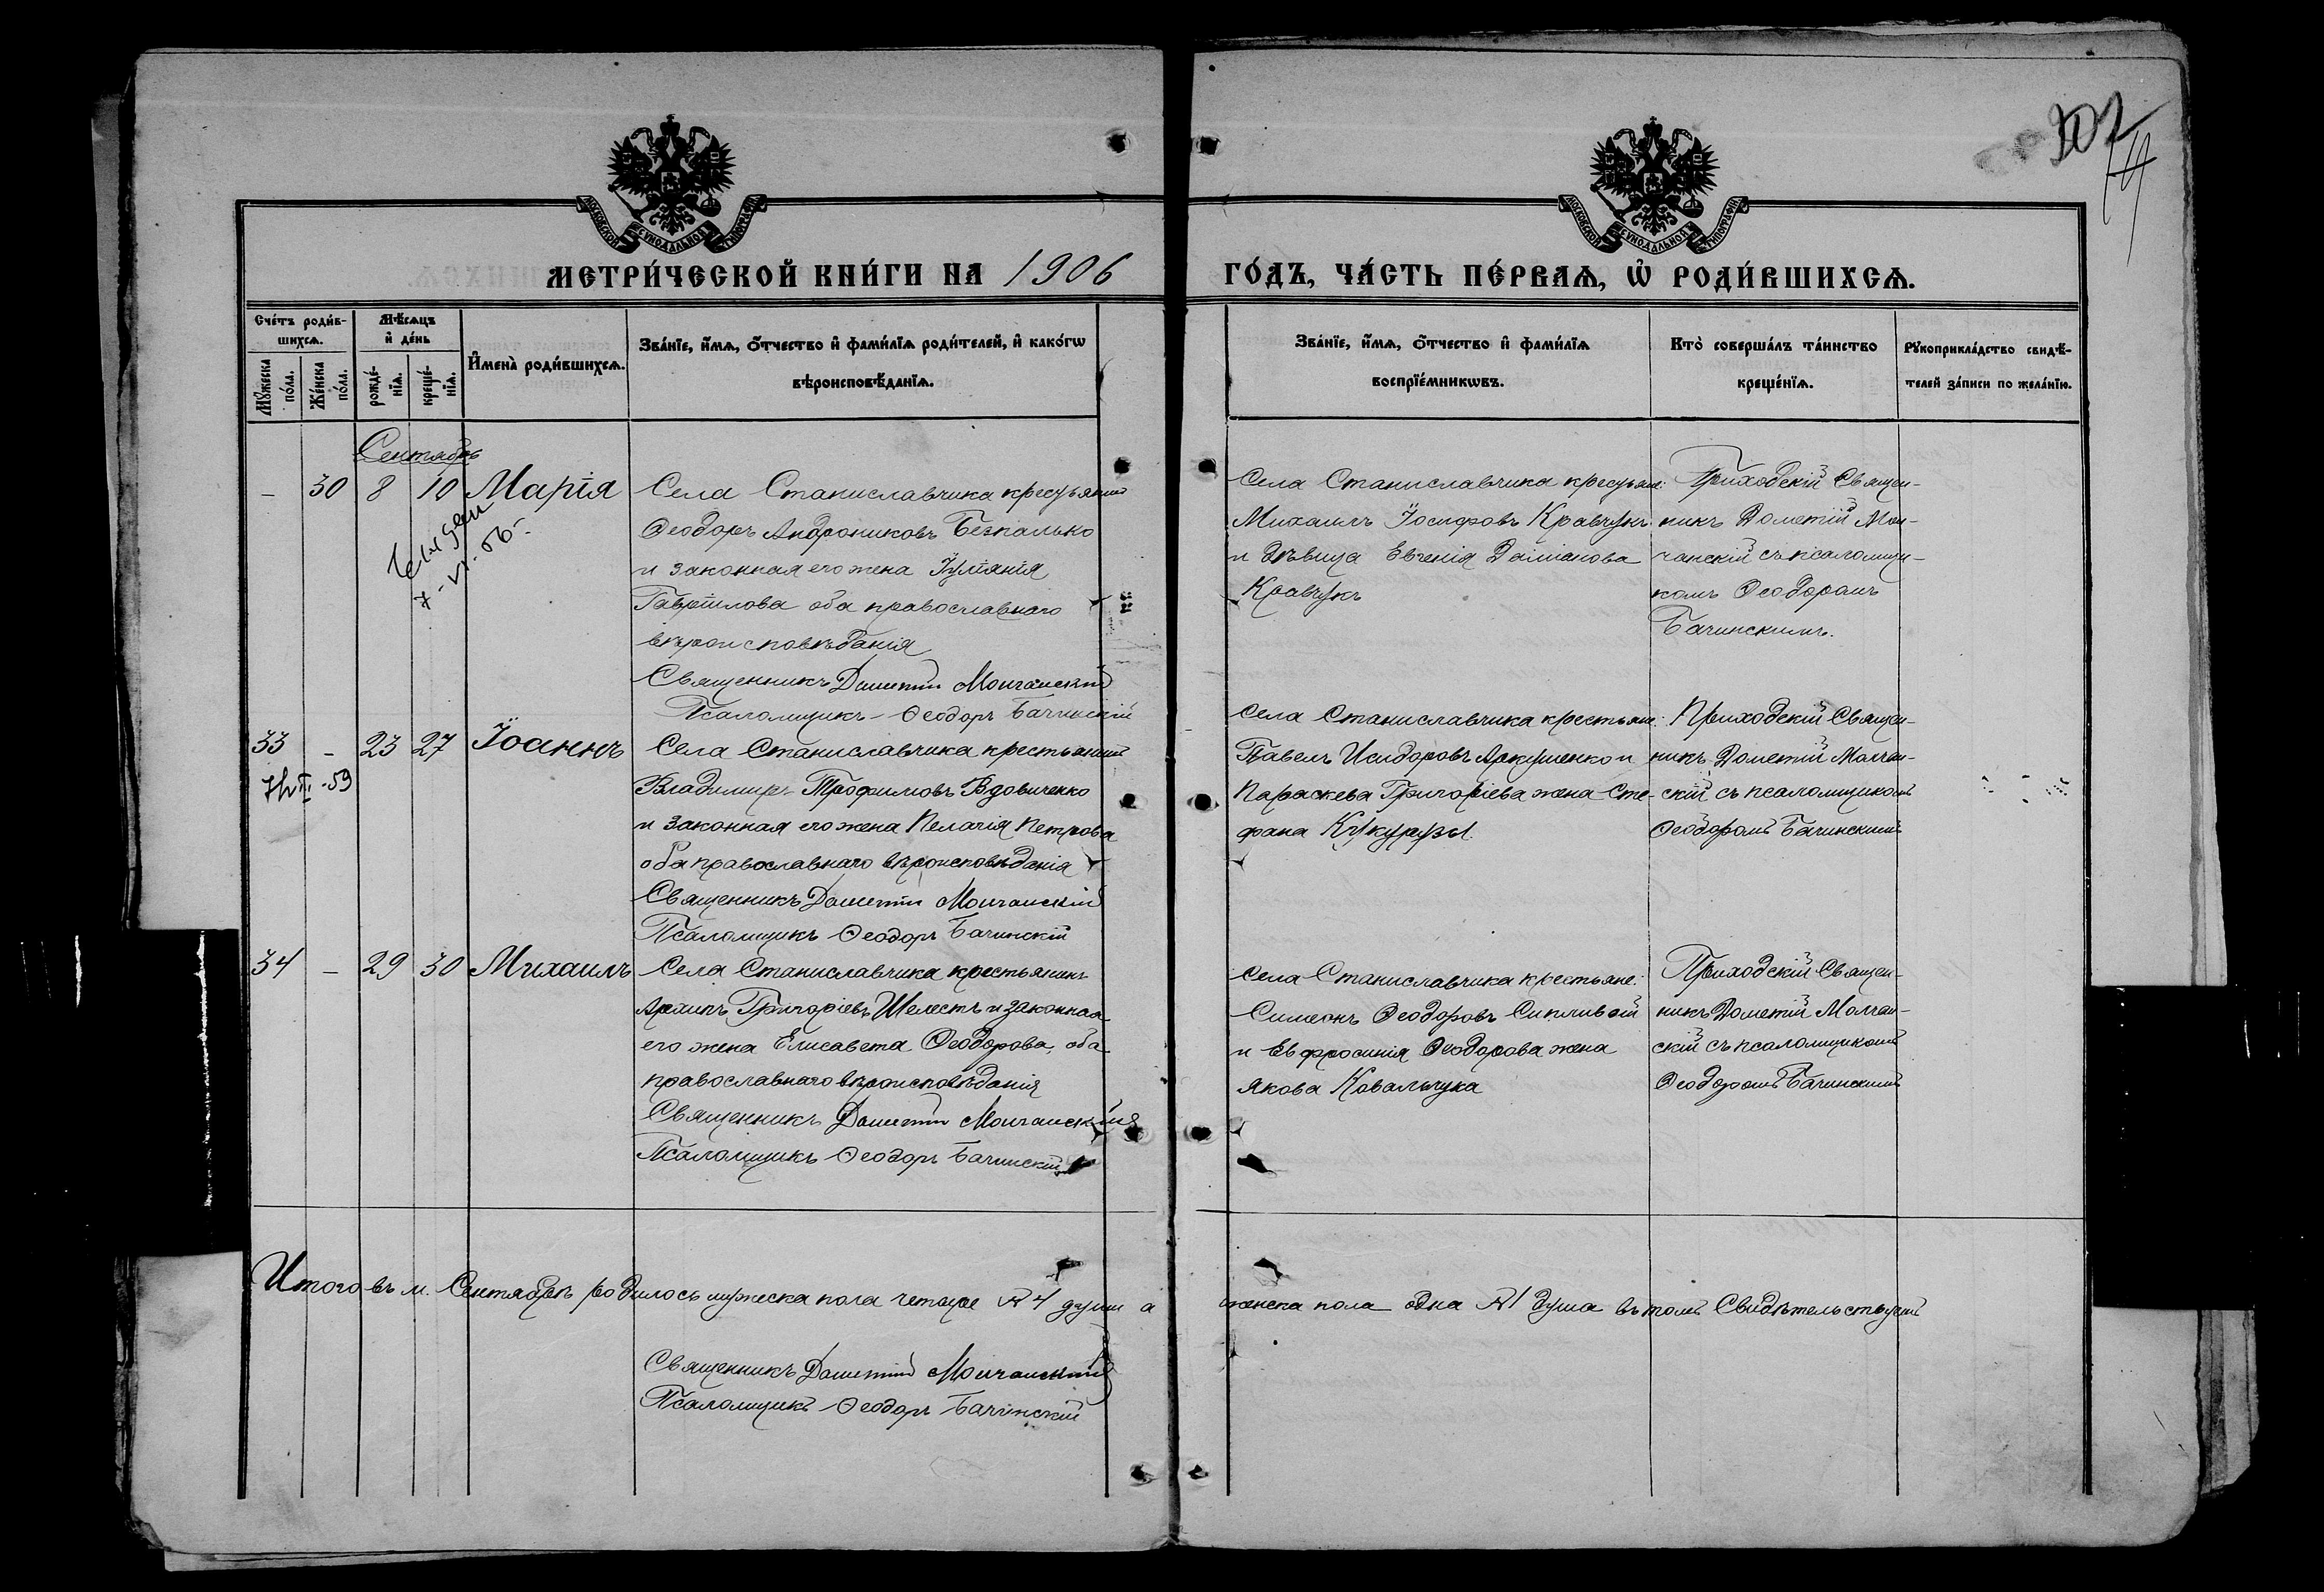 307
МОСКОВСКОЙ СѴНОДАЛЬНОЙ ТИПОГРАФІИ
МОСКОВСКОЙ СѴНОДАЛЬНОЙ ТИПОГРАФІИ
МЕТРИ́ЧЕСКОЙ КНИ́ГИ НА 1906
ГО́ДЪ, ЧА́СТЬ ПЕ́РВАѦ, Ѡ҆ РОДИ́ВШИХСѦ.
Сче́тъ роди́в-
шихсѧ.
Мꙋ́жеска по́ла.
Же́нска по́ла.
Мѣ́сѧцъ
и҆ де́нь
рожде́-
нїѧ.
креще́-
нїѧ.
И҆мена̀ роди́вшихсѧ.
Зва́нїе, и҆́мѧ, ѻ҆́тчество и҆ фами́лїѧ роди́телей, и҆ како́гѡ
вѣроисповѣ́данїѧ.
Зва́нїе, и҆́мѧ, ѻ҆́тчество и҆ фами́лїѧ
воспрїе́мникѡвъ.
Кто̀ соверша́лъ та́инство
креще́нїѧ.
Рꙋкоприкла́дство свидѣ́-
телей за́писи по жела́нїю.
Сентябрь
— 30 8 10 Марія
7-VI-56-
Села Станиславчика крестьянин
Ѳеодоръ Андрониковъ Безпалько
и законная его жена Іуліанія
Гавріилова оба православнаго
вѣроисповѣданія
Священникъ Дометій Молчанскій
Псаломщикъ - Ѳеодоръ Бачинскій
Села Станиславчика крестьяне:
Михаилъ Іосифовъ Кравчукъ
и дѣвица Евгенія Даміанова
Кравчукъ
Приходскій Священ-
никъ Дометій Мол-
чанскій съ псаломщи-
комъ Ѳеодоромъ
Бачинскимъ.
33 — 23 27 Іоаннъ
Села Станиславчика крестьянин
Владимиръ Трофимовъ Вдовиченко
и законная его жена Пелагія Петрова
оба православнаго вѣроисповѣданія
Священникъ Дометій Молчанскій
Псаломщикъ Ѳеодоръ Бачинскій
Села Станиславчика крестьяне:
Павелъ Исидоровъ Аркушенко и
Параскева Григоріева жена Сте-
фана Кукурузы.
Приходскій Священ-
никъ Дометій Молчан-
скій съ псаломщикомъ
Ѳеодоромъ Бачинскимъ
34 — 29 30 Михаилъ
Села Станиславчика крестьянинъ
Архипъ Григоріевъ Шелестъ и законная
его жена Елисавета Ѳеодорова, оба
православнаго вѣроисповѣданія
Священникъ Дометій Молчанскій
Псаломщикъ Ѳеодоръ Бачинскій
Села Станиславчика крестьяне:
Симеонъ Ѳеодоровъ Сипливый
и Евфросинія Ѳеодорова жена
Якова Ковальчука
Приходскій Священ-
никъ Дометій Молчан-
скій съ псаломщикомъ
Ѳеодоромъ Бачинскимъ
Итого въ м. Сентябрѣ родилось мужеска пола четыре 4 души а
женска пола одна 1 душа въ томъ Свидѣтельствуемъ
Священникъ Дометій Молчанскій
Псаломщикъ Ѳеодоръ Бачинскій